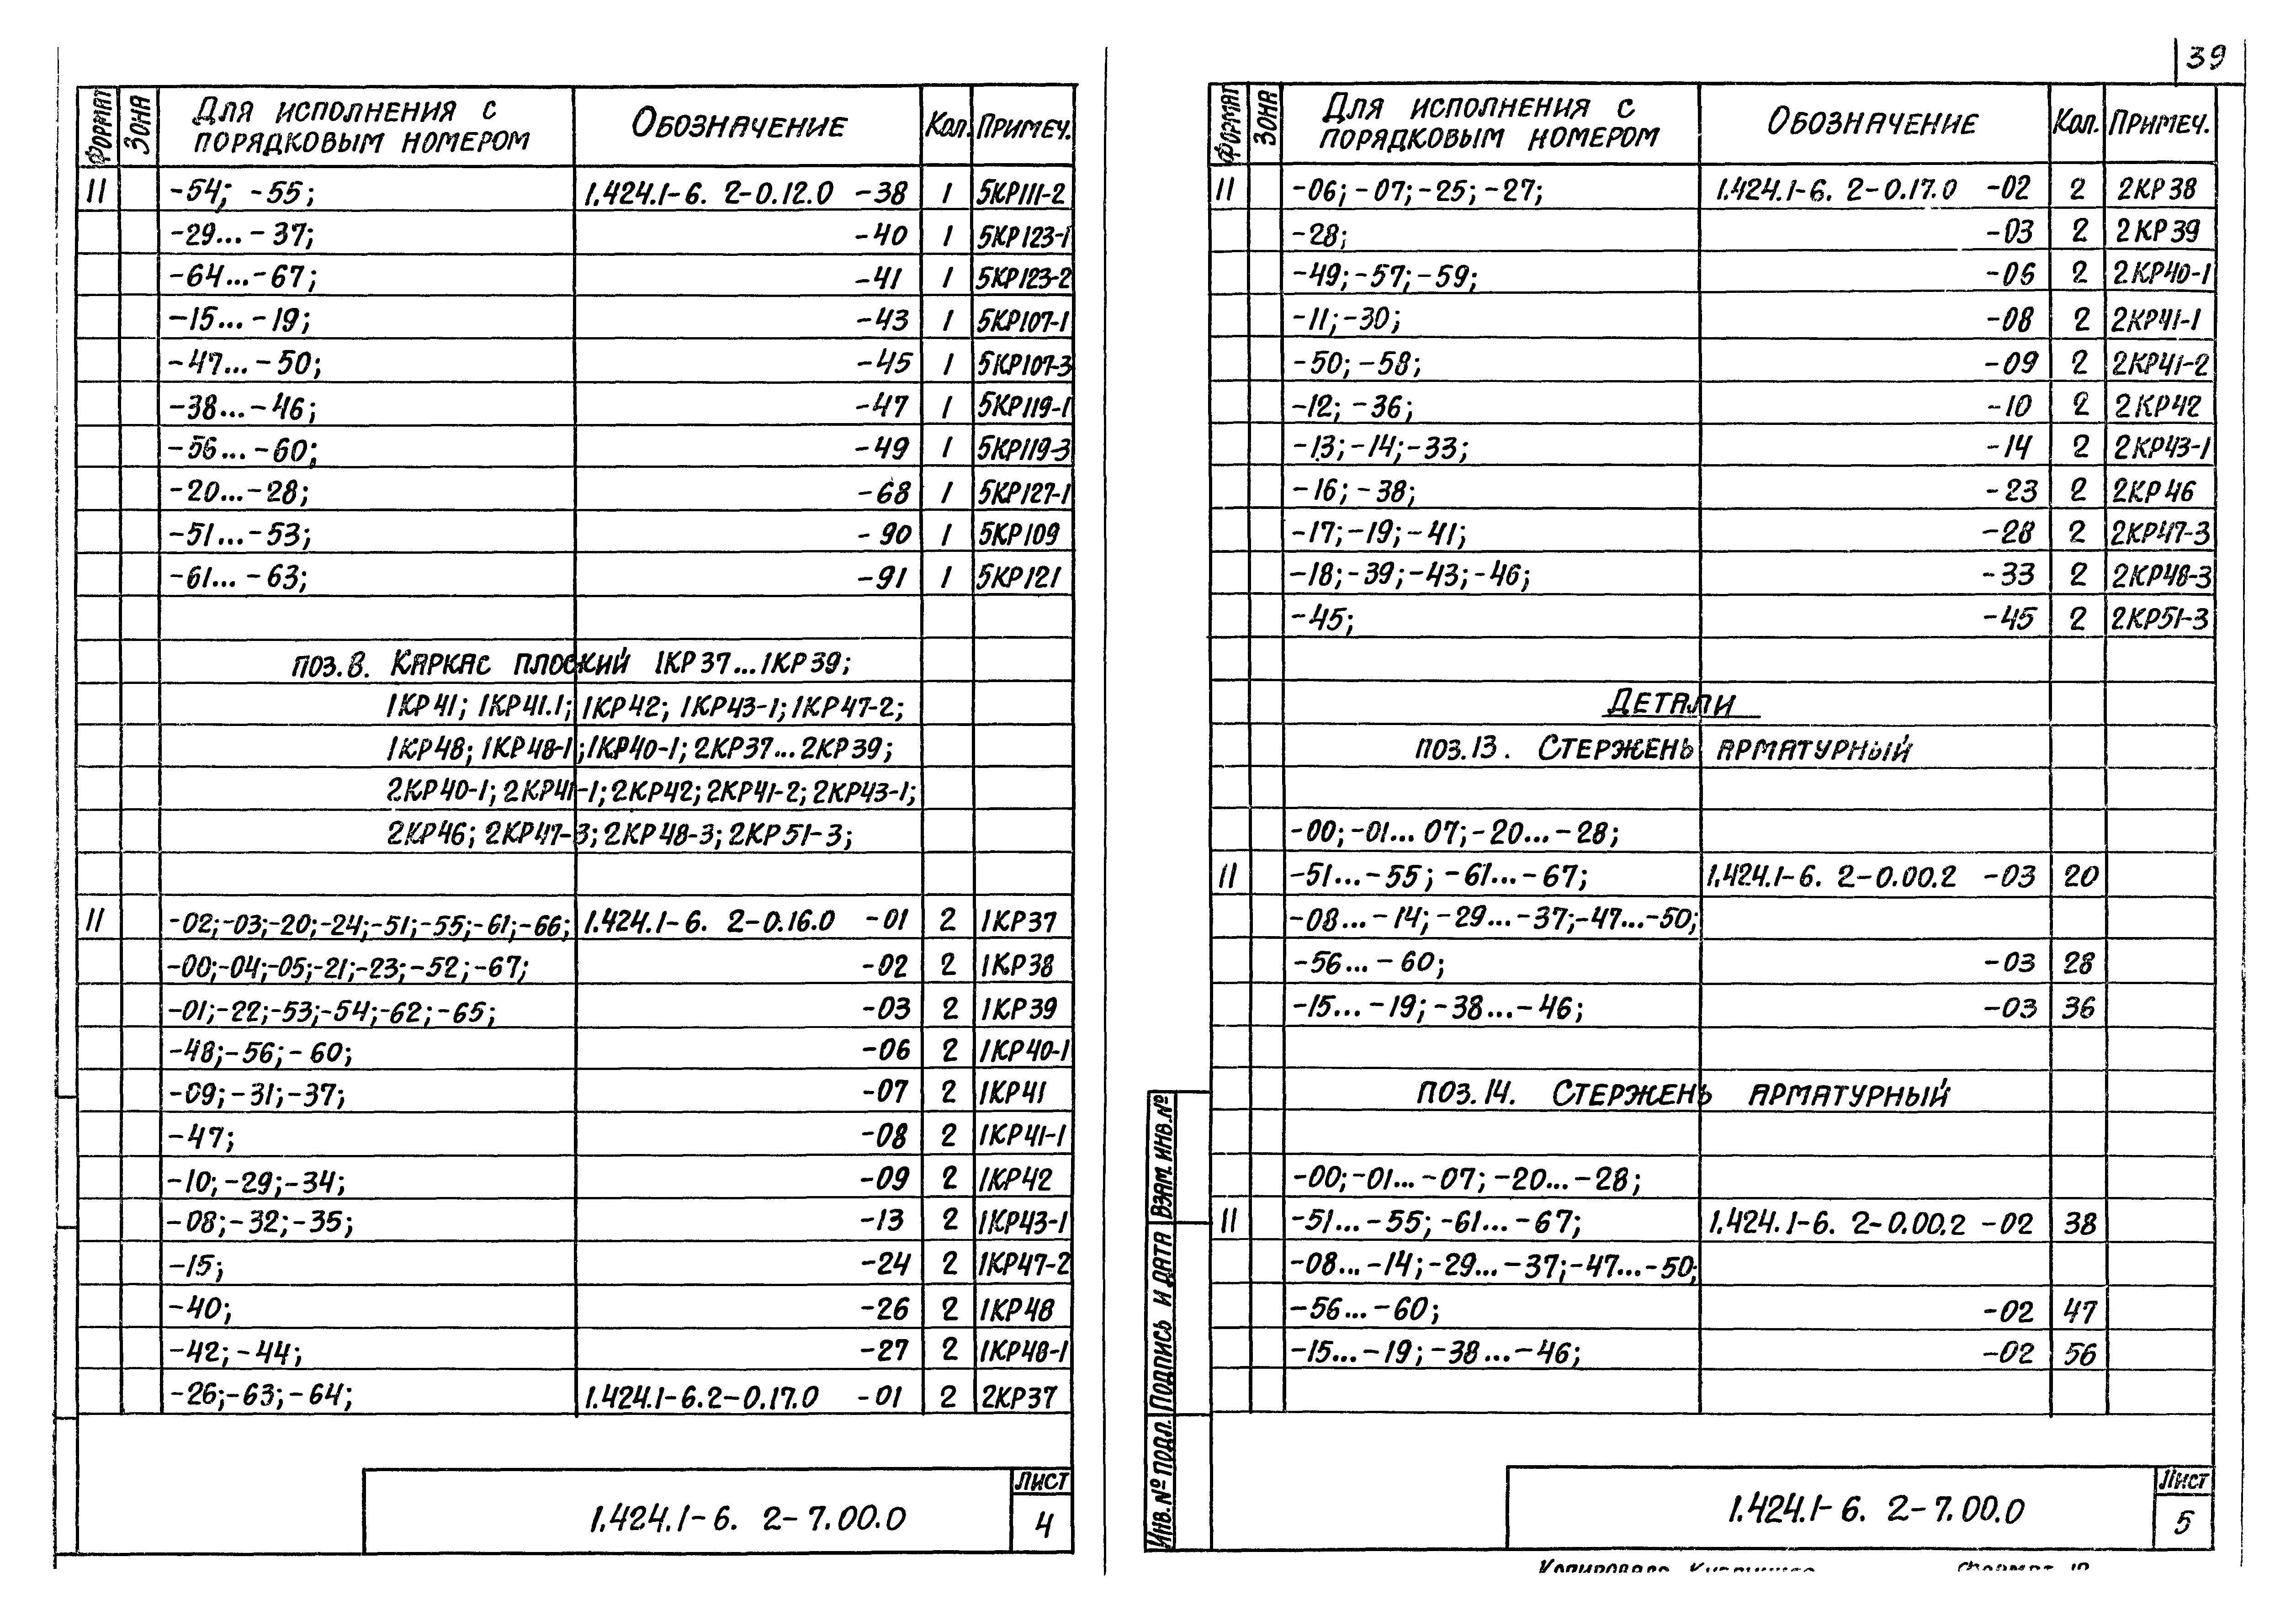 39
ФОРМАТ ЗОНА Для исполнения с порядковым номером Обозначение Кол. Примеч.
11 -54; -55; 1.424.1-6. 2-0.12.0 -38 1 5КР111-2
-29...-37; -40 1 5КР123-1
-64...-67; -41 1 5КР123-2
-15...-19; -43 1 5КР107-1
-47...-50; -45 1 5КР107-3
-38...-46; -47 1 5КР119-1
-56...-60; -49 1 5КР119-3
-20...-28; -68 1 5КР127-1
-51...-53; -90 1 5КР109
-61...-63; -91 1 5КР121
поз.8. Каркас плоский 1КР37...1КР39;
1КР41; 1КР41.1; 1КР42; 1КР43-1; 1КР47-2;
1КР48; 1КР48-1; 1КР40-1; 2КР37...2КР39;
2КР40-1; 2КР41-1; 2КР42; 2КР41-2; 2КР43-1;
2КР46; 2КР47-3; 2КР48-3; 2КР51-3;
11 -02;-03;-20;-24;-51;-55;-61;-66; 1.424.1-6. 2-0.16.0 -01 2 1КР37
-00;-04;-05;-21;-23;-52;-67; -02 2 1КР38
-01;-22;-53;-54;-62;-65; -03 2 1КР39
-48;-56;-60; -06 2 1КР40-1
-09;-31;-37; -07 2 1КР41
-47; -08 2 1КР41-1
-10;-29;-34; -09 2 1КР42
-08;-32;-35; -13 2 1КР43-1
-15; -24 2 1КР47-2
-40; -26 2 1КР48
-42;-44; -27 2 1КР48-1
-26;-63;-64; 1.424.1-6.2-0.17.0 -01 2 2КР37
1.424.1-6. 2-7.00.0 Лист 4
ФОРМАТ ЗОНА Для исполнения с порядковым номером Обозначение Кол. Примеч.
11 -06;-07;-25;-27; 1.424.1-6. 2-0.17.0 -02 2 2КР38
-28; -03 2 2КР39
-49;-57;-59; -06 2 2КР40-1
-11;-30; -08 2 2КР41-1
-50;-58; -09 2 2КР41-2
-12;-36; -10 2 2КР42
-13;-14;-33; -14 2 2КР43-1
-16;-38; -23 2 2КР46
-17;-19;-41; -28 2 2КР47-3
-18;-39;-43;-46; -33 2 2КР48-3
-45; -45 2 2КР51-3
Детали
поз.13. Стержень арматурный
-00;-01...07;-20...-28;
11 -51...-55; -61...-67; 1.424.1-6. 2-0.00.2 -03 20
-08...-14;-29...-37;-47...-50;
-56...-60; -03 28
-15...-19;-38...-46; -03 36
поз.14. Стержень арматурный
-00;-01...-07;-20...-28;
11 -51...-55; -61...-67; 1.424.1-6. 2-0.00.2 -02 38
-08...-14;-29...-37;-47...-50;
-56...-60; -02 47
-15...-19;-38...-46; -02 56
Инв.№ подл. Подпись и дата Взам.инв.№
1.424.1-6. 2-7.00.0 Лист 5